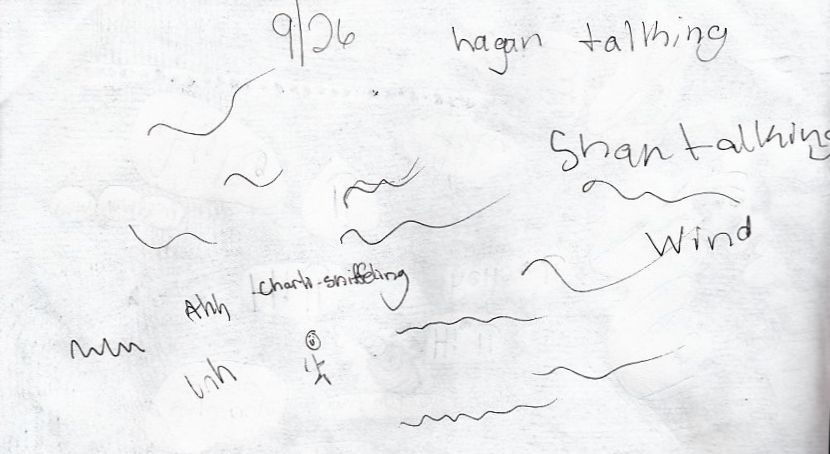 9/26 hagan talking
Shan talking
Wind
Charli-sniffeling
Ahh